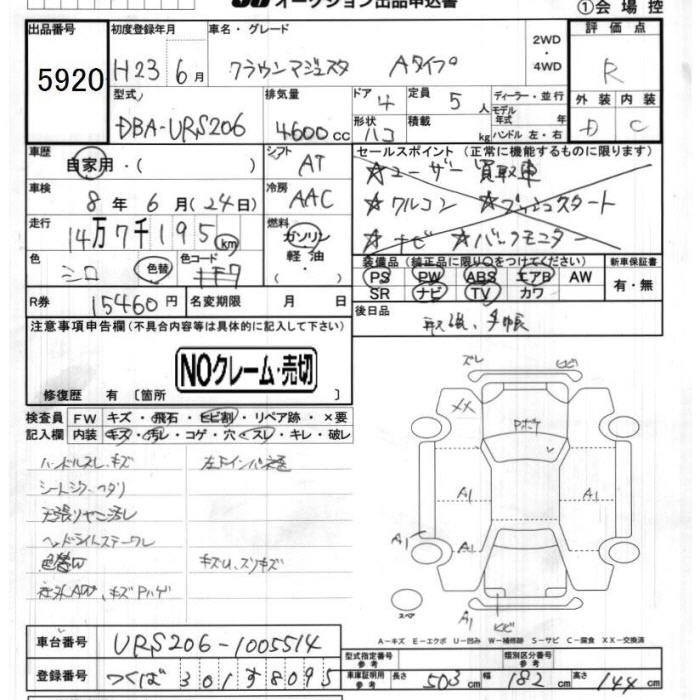 オークション出品申込書
①会場控
出品番号
5920
初度登録年月
H23 6月
車名・グレード
クラウンマジェスタ Aタイプ
2WD
・
4WD
評価点
R
型式
DBA-URS206
排気量
4600cc
ドア 4
定員 5人
ディーラー・並行
モデル年式 年
形状 ハコ
積載 kg
ハンドル 左・右
外装 内装
D C
車歴
自家用・( )
シフト AT
セールスポイント(正常に機能するものに限ります)
☆ユーザー買取車
☆ワルコン ☆プッシュスタート
☆ナビ ☆バックモニター
車検
8年 6月(24日)
冷房 AAC
走行
14万7千195km
燃料
ガソリン
軽油・
( )
色
シロ 色替
色コード
装備品(純正品に限り○をつけてください)
PS PW ABS エアB AW
SR ナビ TV カワ
新車保証書
有・無
R券 15460円
名変期限 月 日
後日品
取説、手帳
注意事項申告欄(不具合内容等は具体的に記入して下さい)
NOクレーム・売切
修復歴 有〔箇所 〕
検査員記入欄
FW キズ・飛石・ヒビ割・リペア跡・×要
内装 キズ・汚レ・コゲ・穴・スレ・キレ・破レ
ハンドルスレ、キズ
シートシワ・ヘタリ
天張リヤニ汚レ
ヘッドライトステークレ
キズU、スリキズ
ズレ
ヒビ
XX
Pボケ
A1
A1
A1
A1
A1
ヒビ
スペア
A-キズ E-エクボ U-凹み W-補修跡 S-サビ C-腐食 XX-交換済
車台番号 URS206-1005514
型式指定番号 参考
類別区分番号 参考
登録番号 つくば 301 す 8095
車庫証明用 参考
長さ 503cm
幅 182cm
高さ 144cm